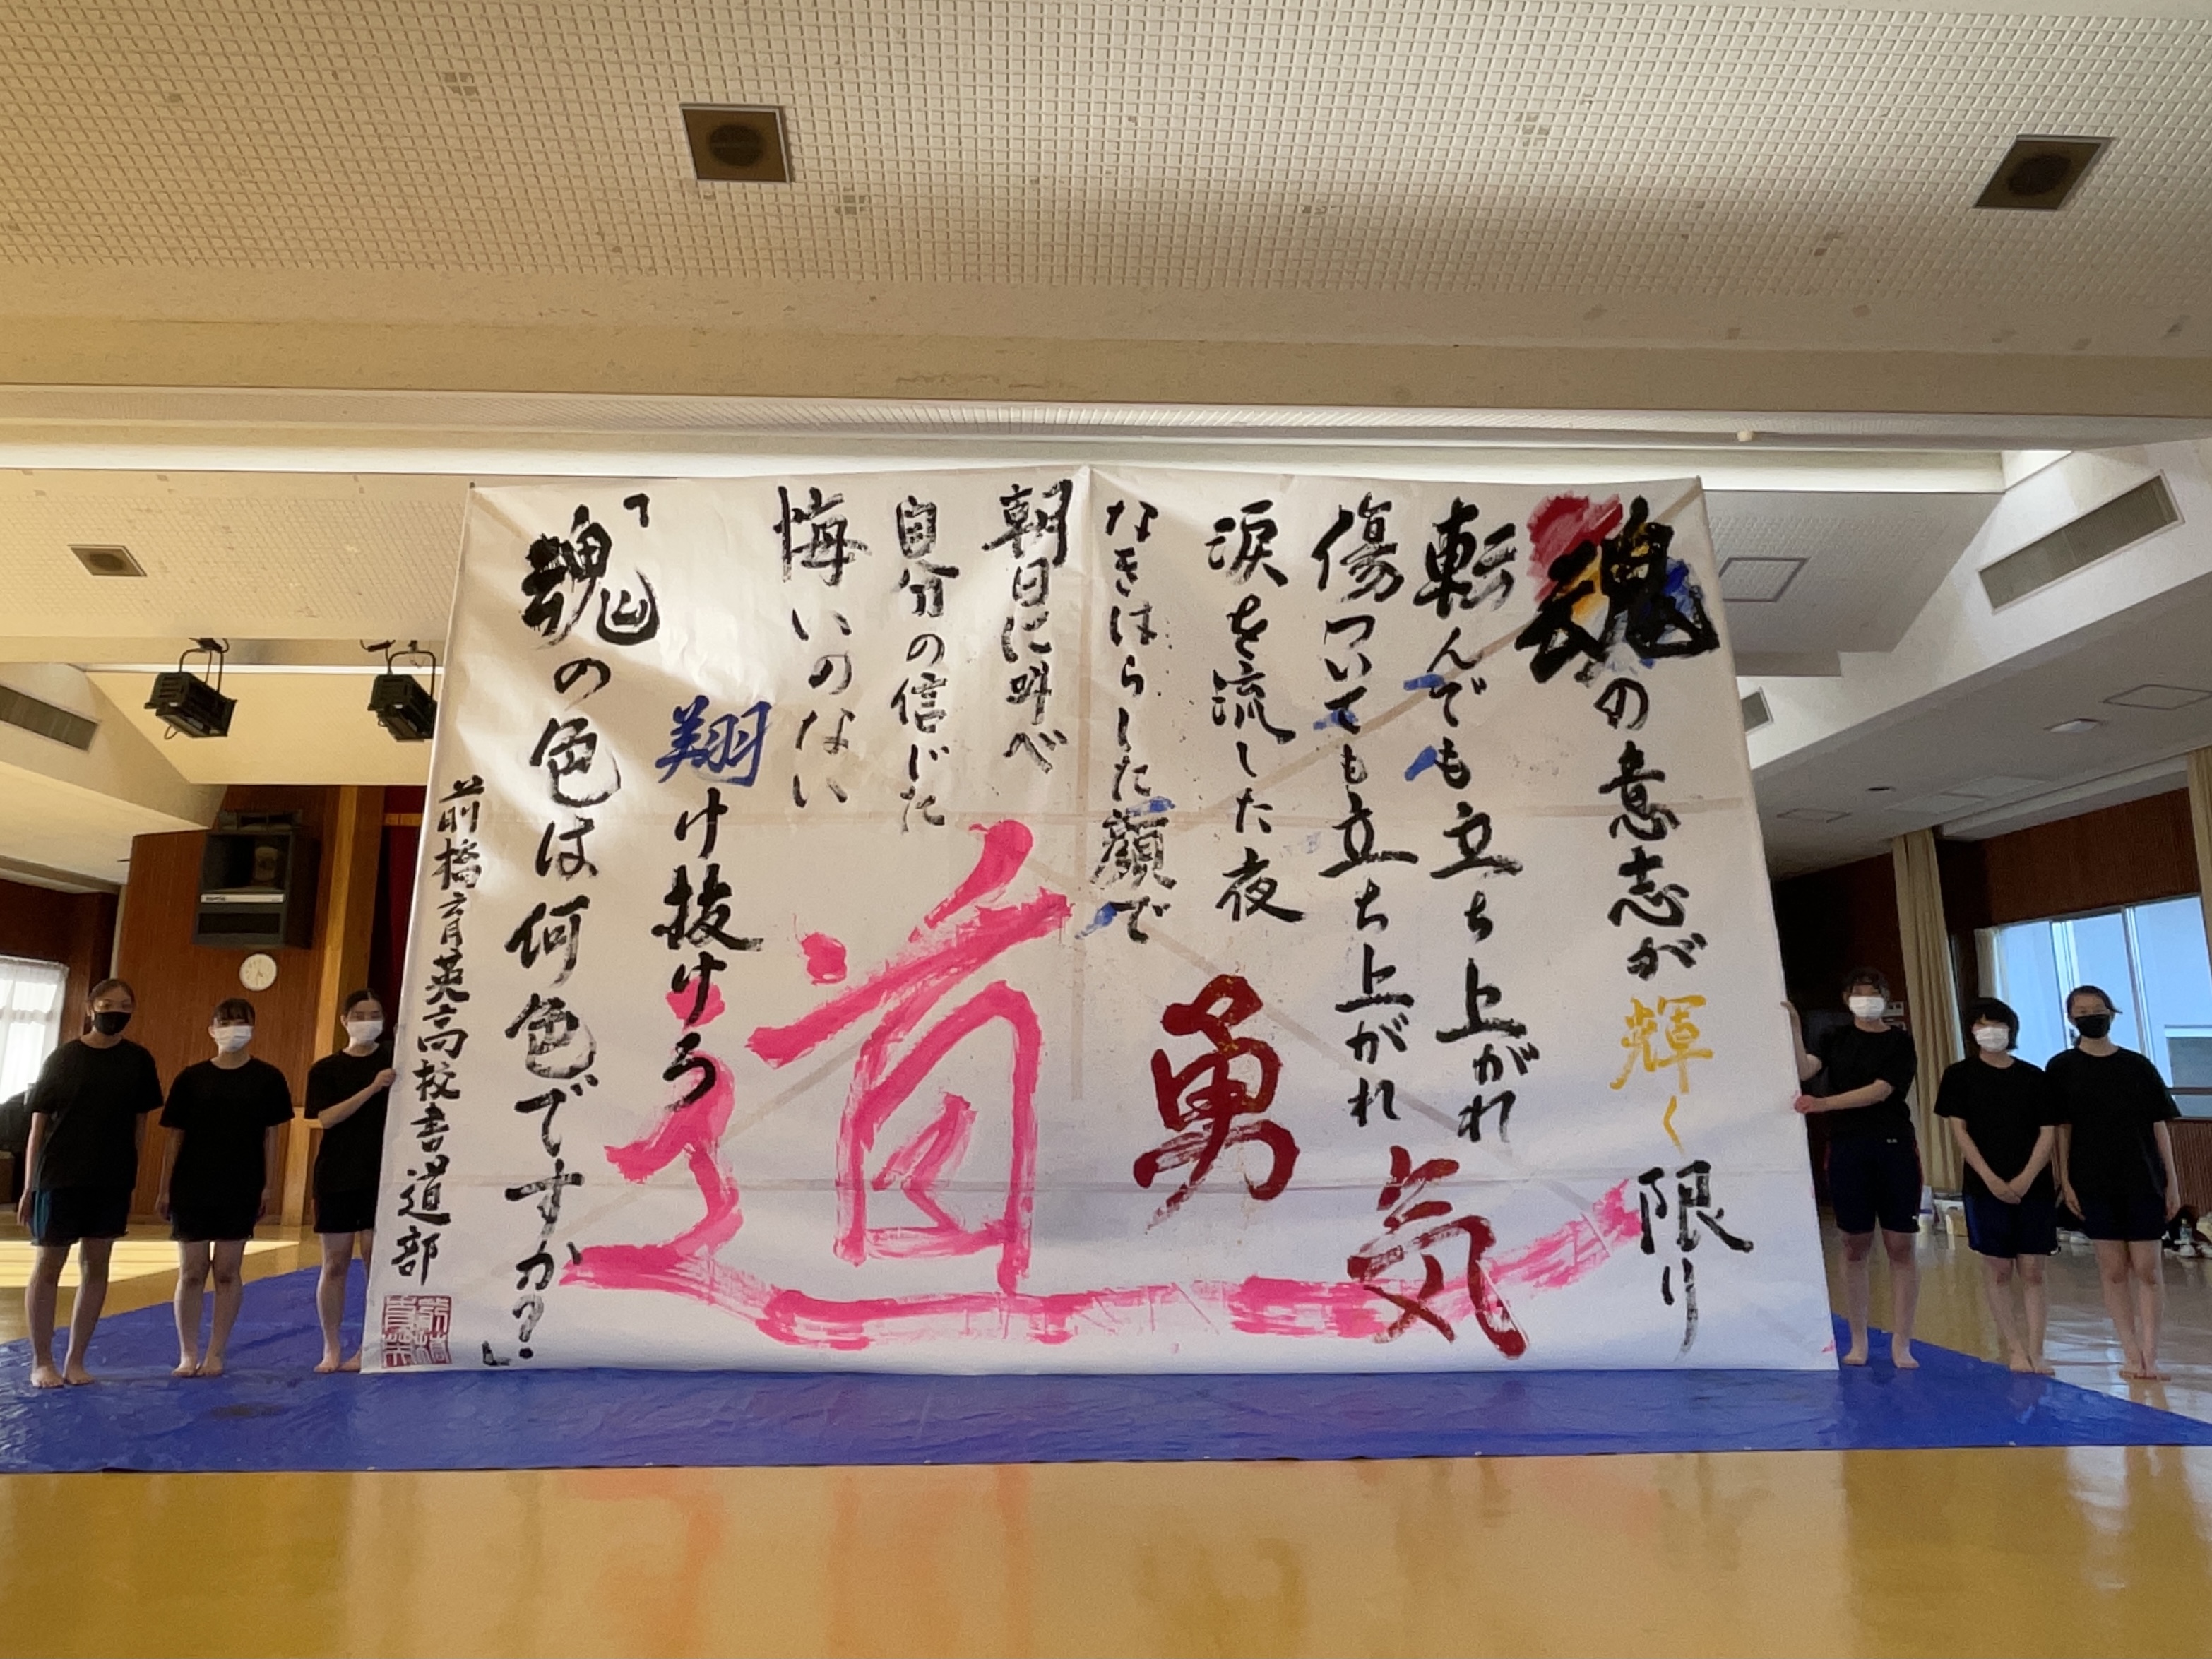 魂の意志が輝く限り
転んでも立ち上がれ
傷ついても立ち上がれ
勇気
涙を流した夜
なきはらした顔で
朝日に叫べ
自分の信じた
悔いのない
道
翔け抜けろ
「魂の色は何色ですか?」
前橋育英高校書道部